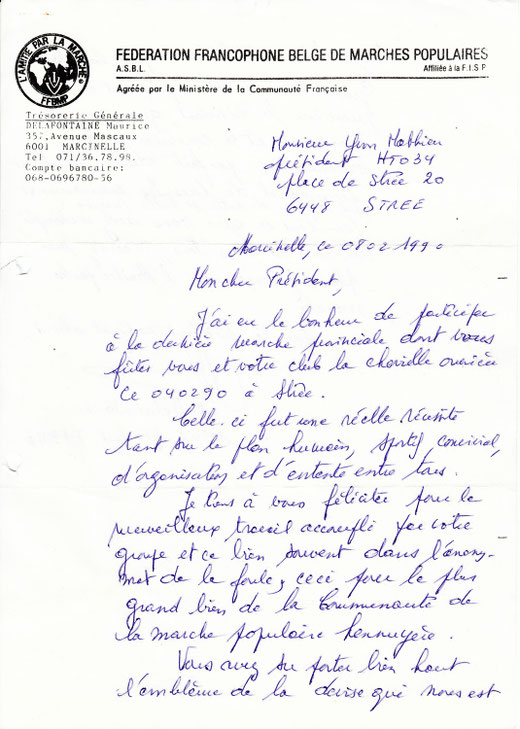 L'AMITIE PAR LA MARCHE
FFBMP
FEDERATION FRANCOPHONE BELGE DE MARCHES POPULAIRES
A.S.B.L. Affiliée à la F.I.S.P
Agréée par le Ministère de la Communauté Française
Trésorerie Générale
DELAFONTAINE Maurice
357,Avenue Mascaux
6001 MARCINELLE
Tel 071/36.78.98.
Compte bancaire:
068-0696780-56
Monsieur Yvon Mathieu
président HT034
place de Strée 20
6448 STREE
Marcinelle, ce 08 02 1990
Mon cher Président,
J'ai eu le bonheur de participer
à la dernière marche provinciale dont vous
fûtes vous et votre club la cheville ouvrière
ce 040290 à Strée.
Celle-ci fut une réelle réussite
tant sur le plan humain, sportif, convivial,
d'organisation et d'entente entre tous.
Je tiens à vous féliciter pour le
merveilleux travail accompli par votre
groupe et ce bien souvent dans l'anony-
mat de la foule, ceci pour le plus
grand bien de la Communauté de
la marche populaire hennuyère.
Vous avez su porter bien haut
l'emblème de la devise qui nous est